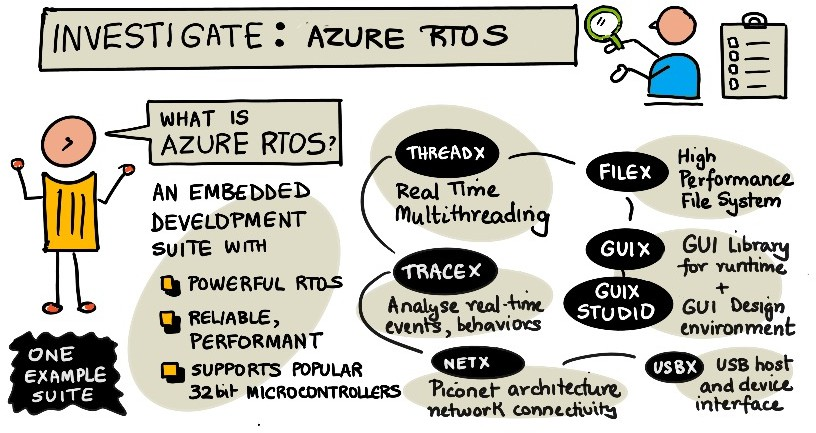 INVESTIGATE: AZURE RTOS
WHAT IS
AZURE RTOS?
AN EMBEDDED
DEVELOPMENT
SUITE WITH
POWERFUL RTOS
RELIABLE,
PERFORMANT
SUPPORTS POPULAR
32bit MICROCONTROLLERS
ONE
EXAMPLE
SUITE
THREADX
Real Time
Multithreading
TRACEX
Analyse real-time
events, behaviors
NETX
Piconet architecture
network connectivity
FILEX
High
Performance
File System
GUIX
GUIX
STUDIO
GUI Library
for runtime
+
GUI Design
environment
USBX
USB host
and device
interface